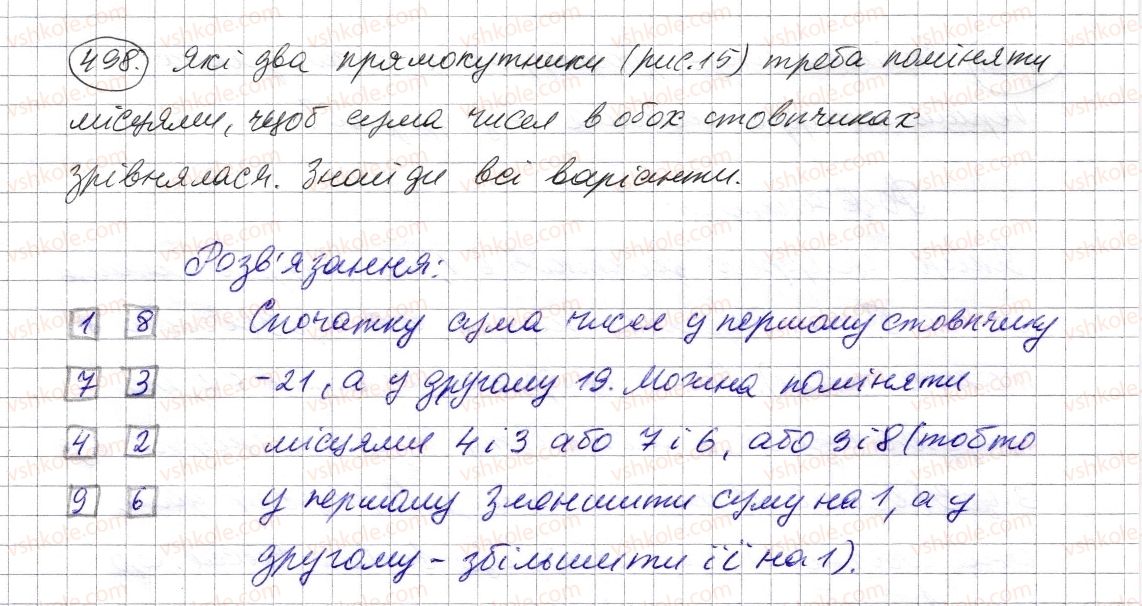 498. Які два прямокутники (рис.15) треба поміняти
місцями, щоб сума чисел в обох стовпчиках
зрівнялася. Знайди всі варіанти.
Розв'язання:
1 8 Спочатку сума чисел у першому стовпчику
7 3 -21, а у другому 19. Можна поміняти
4 2 місцями 4 і 3 або 7 і 6, або 9 і 8 (тобто
9 6 у першому зменшити суму на 1, а у
другому - збільшити її на 1).